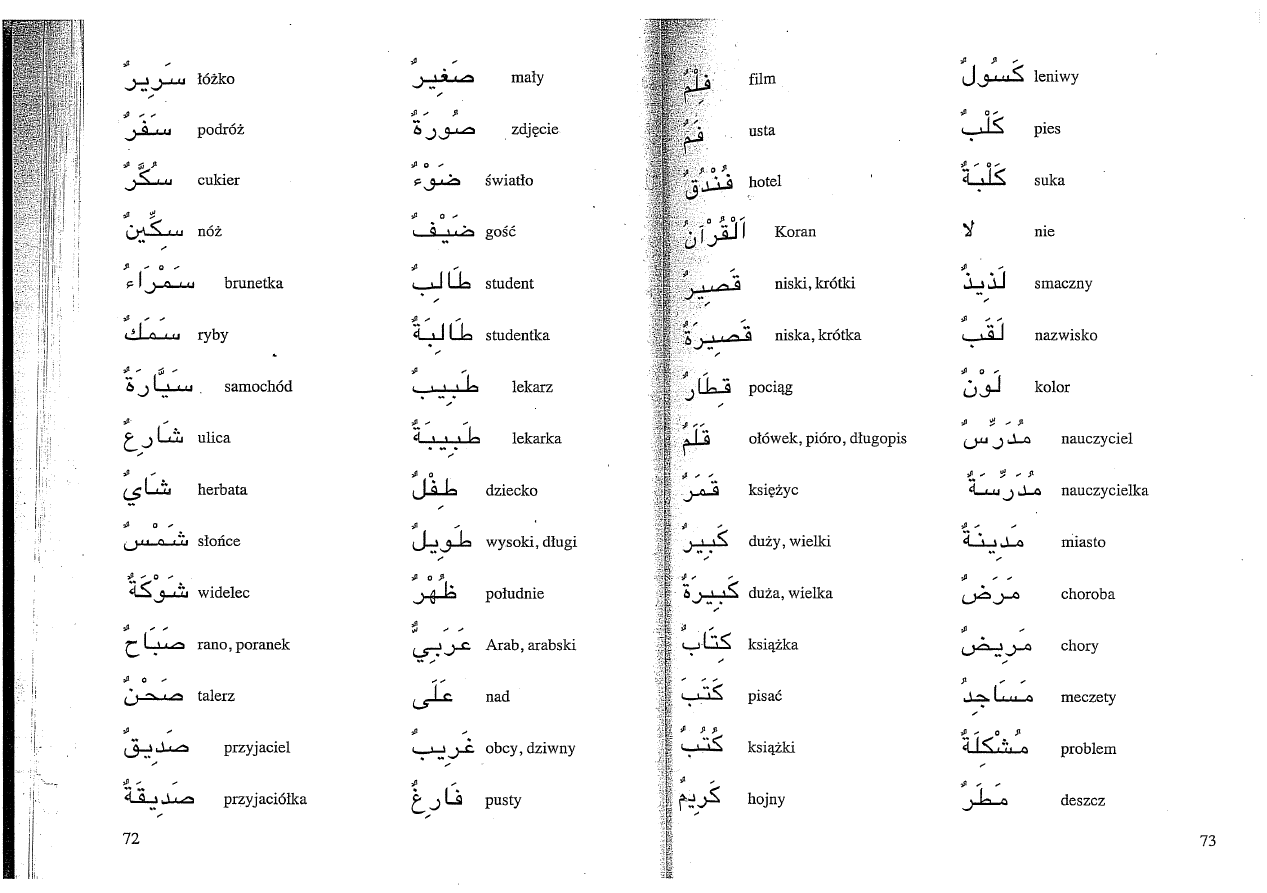 سَرِيرٌ łóżko
سَفَرٌ podróż
سُكَّرٌ cukier
سِكِّينٌ nóż
سَمْرَاءُ brunetka
سَمَكٌ ryby
سَيَّارَةٌ samochód
شَارِعٌ ulica
شَايٌ herbata
شَمْسٌ słońce
شَوْكَةٌ widelec
صَبَاحٌ rano, poranek
صَحْنٌ talerz
صَدِيقٌ przyjaciel
صَدِيقَةٌ przyjaciółka
72
صَغِيرٌ mały
صُورَةٌ zdjęcie
ضَوْءٌ światło
ضَيْفٌ gość
طَالِبٌ student
طَالِبَةٌ studentka
طَبِيبٌ lekarz
طَبِيبَةٌ lekarka
طِفْلٌ dziecko
طَوِيلٌ wysoki, długi
ظُهْرٌ południe
عَرَبِيٌّ Arab, arabski
عَلَى nad
غَرِيبٌ obcy, dziwny
فَارِغٌ pusty
فِلْمٌ film
فَمٌ usta
فُنْدُقٌ hotel
اَلْقُرْآنُ Koran
قَصِيرٌ niski, krótki
قَصِيرَةٌ niska, krótka
قِطَارٌ pociąg
قَلَمٌ ołówek, pióro, długopis
قَمَرٌ księżyc
كَبِيرٌ duży, wielki
كَبِيرَةٌ duża, wielka
كِتَابٌ książka
كَتَبَ pisać
كُتُبٌ książki
كَرِيمٌ hojny
كَسُولٌ leniwy
كَلْبٌ pies
كَلْبَةٌ suka
لا nie
لَذِيذٌ smaczny
لَقَبٌ nazwisko
لَوْنٌ kolor
مُدَرِّسٌ nauczyciel
مُدَرِّسَةٌ nauczycielka
مَدِينَةٌ miasto
مَرَضٌ choroba
مَرِيضٌ chory
مَسَاجِدُ meczety
مُشْكِلَةٌ problem
مَطَرٌ deszcz
73